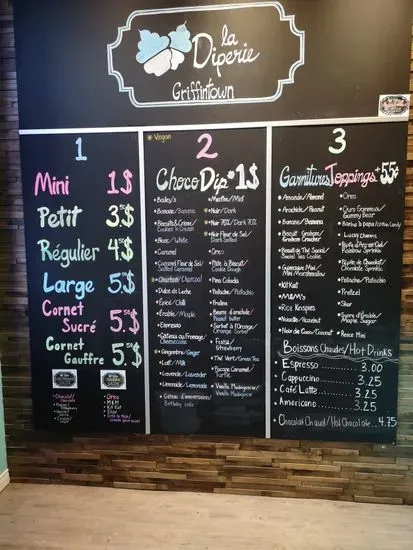 la
Diperie
Griffintown
1
Mini 1$
Petit 3.$
Régulier 4.$
Large 5.$
Cornet
Sucré 5.$
Cornet
Gauffre 5.$
* Vegan
2
Choco Dip* 1$
• Bailey's
• Banane/Banana
• Biscuits & Crème/
Cookies n Cream
• Blanc/White
• Caramel
• Caramel Fleur de Sel/
Salted Caramel
• Charbon/Charcoal
• Dulce de Leche
• Épicé/Chili
• Érable/Maple
• Espresso
• Gâteau au Fromage/
Cheesecake
• Gingembre/Ginger
• Lait/Milk
• Lavende/Lavender
• Limonade/Lemonade
• Gâteau d'anniversaire/
Birthday cake
• Menthe/Mint
• Noir/Dark
• Noir 70%/Dark 70%
• Noir Fleur de Sel/
Dark Salted
• Oreo
• Pâte à Biscuit/
Cookie Dough
• Pina Colada
• Pistache/Pistachio
• Praline
• Beurre d'arachide/
Peanut butter
• Sorbet à l'Orange/
Orange Sorbet
• Fraise/
Strawberry
• Thé Vert/Green Tea
• Tortue Caramel/
Turtle
• Vanille Madagascar/
Vanilla Madagascar
3
Garnitures Toppings + 55¢
• Amande/Almond
• Arachide/Peanut
• Banane/Banana
• Biscuit Graham/
Graham Cracker
• Biscuit de Thé Social/
Social Tea Cookie
• Guimauve Mini/
Mini Marshmallow
• Kit Kat
• M&M's
• Rice Krispies
• Noisette/Hazelnut
• Noix de Coco/Coconut
• Oreo
• Ours Gommeux/
Gummy Bear
• Barbe à papa/Cotton Candy
• Lucky Charms
• Pépite d'Arc-en-Ciel/
Rainbow Sprinkle
• Pépite de Chocolat/
Chocolate Sprinkle
• Pistache/Pistachio
• Pretzel
• Skor
• Sucre d'Érable/
Maple Sugar
• Reese Mini
Boissons Chaudes/Hot Drinks
Espresso 3.00
Cappuccino 3.25
Café Latte 3.25
Americano 3.25
Chocolat Chaud/Hot Chocolate 4.75
• Chocolat/
Chocolate
• Oreo
• M&M
• Kit Kat
• Skor